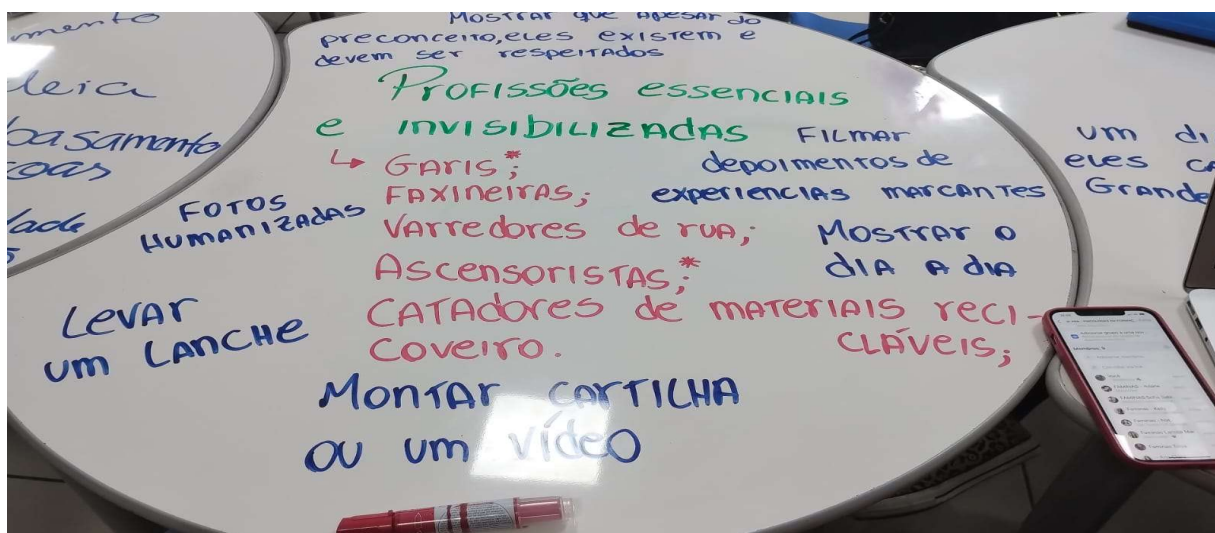 mento
deia
basamento
coas
dade
s
MOSTRAR QUE APESAR do
preconceito, eles existem e
devem ser respeitados
Profissões essenciais
e invisibilizadas
↳ GARIS;*
FAXINEIRAS;
VARREDORES de rua;
ASCENSORISTAS;*
CATADORES de MATERIAIS RECI-
CLÁVEIS;
COVEIRO.
FILMAR
depoimentos de
experiencias marcantes
MOSTRAR O
DIA A DIA
FOTOS
HUMANIZADAS
LEVAR
UM LANCHE
MONTAR CARTILHA
OU UM VÍDEO
um di
eles ca
Grande